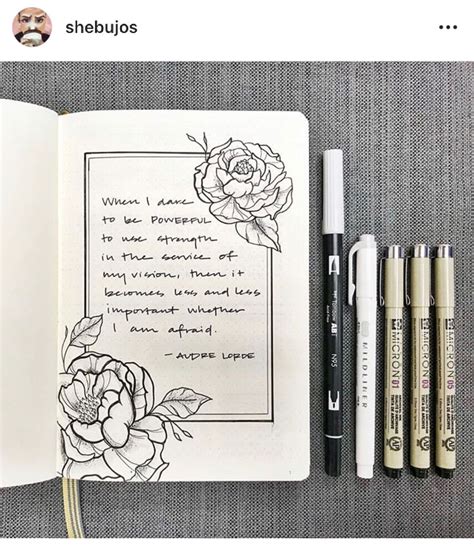 shebujos
When I dare
to be POWERFUL
to use strength
in the service of
my vision, then it
becomes less and less
important whether
I am afraid.
— AUDRE LORDE
ABT
N95
MILDLINER
MICRON 01
MICRON 03
MICRON 05